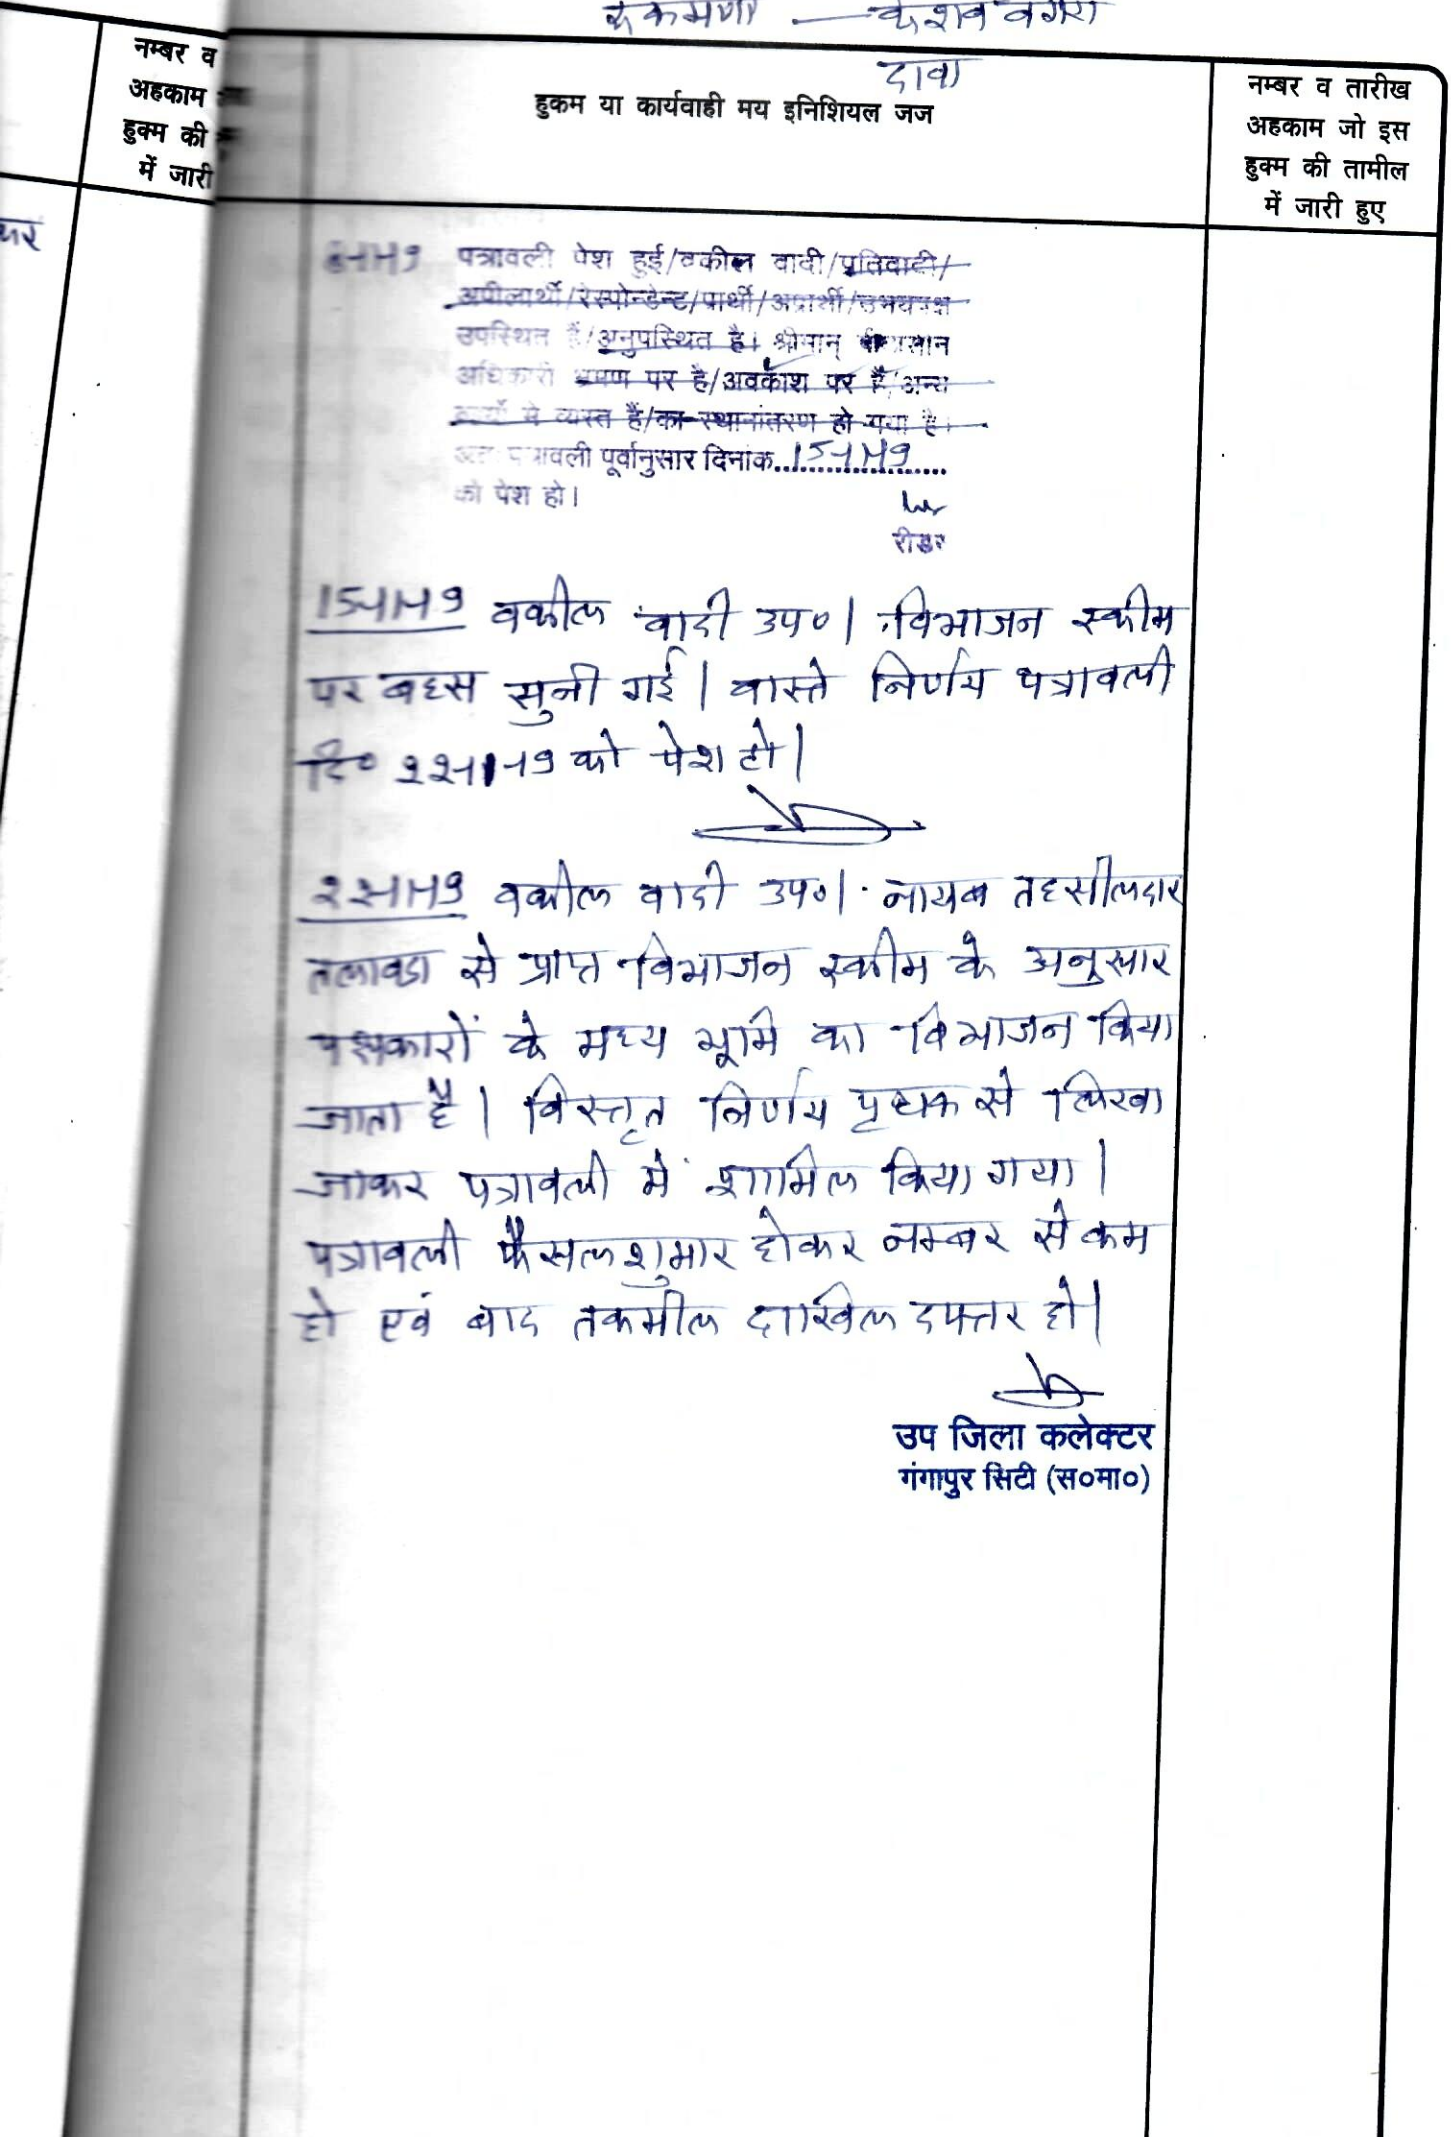 रुकमणी — केशव वगैरा
दावा
नम्बर व
अहकाम
हुक्म की
में जारी
हुकम या कार्यवाही मय इनिशियल जज
नम्बर व तारीख
अहकाम जो इस
हुक्म की तामील
में जारी हुए
कर
पत्रावली पेश हुई/वकील वादी/प्रतिवादी/
अपीलार्थी/रेस्पोन्डेन्ट/प्रार्थी/अप्रार्थी/उभयपक्ष
उपस्थित हैं/अनुपस्थित है। श्रीमान्
अधिकारी भ्रमण पर है/अवकाश पर हैं/अन्य
कार्यों मे व्यस्त हैं/का स्थानांतरण हो गया है।
अतः पत्रावली पूर्वानुसार दिनांक..15-1-19..
को पेश हो।
रीडर
15-1-19 वकील वादी उप०। विभाजन स्कीम
पर बहस सुनी गई। वास्ते निर्णय पत्रावली
दि० 22-1-19 को पेश हो।
22-1-19 वकील वादी उप०। नायब तहसीलदार
तलावडा से प्राप्त विभाजन स्कीम के अनुसार
पक्षकारों के मध्य भूमि का विभाजन किया
जाता है। विस्तृत निर्णय पृथक से लिखा
जाकर पत्रावली में शामिल किया गया।
पत्रावली फैसल शुमार होकर नम्बर से कम
हो एवं बाद तकमील दाखिल दफ्तर हो।
उप जिला कलेक्टर
गंगापुर सिटी (स०मा०)